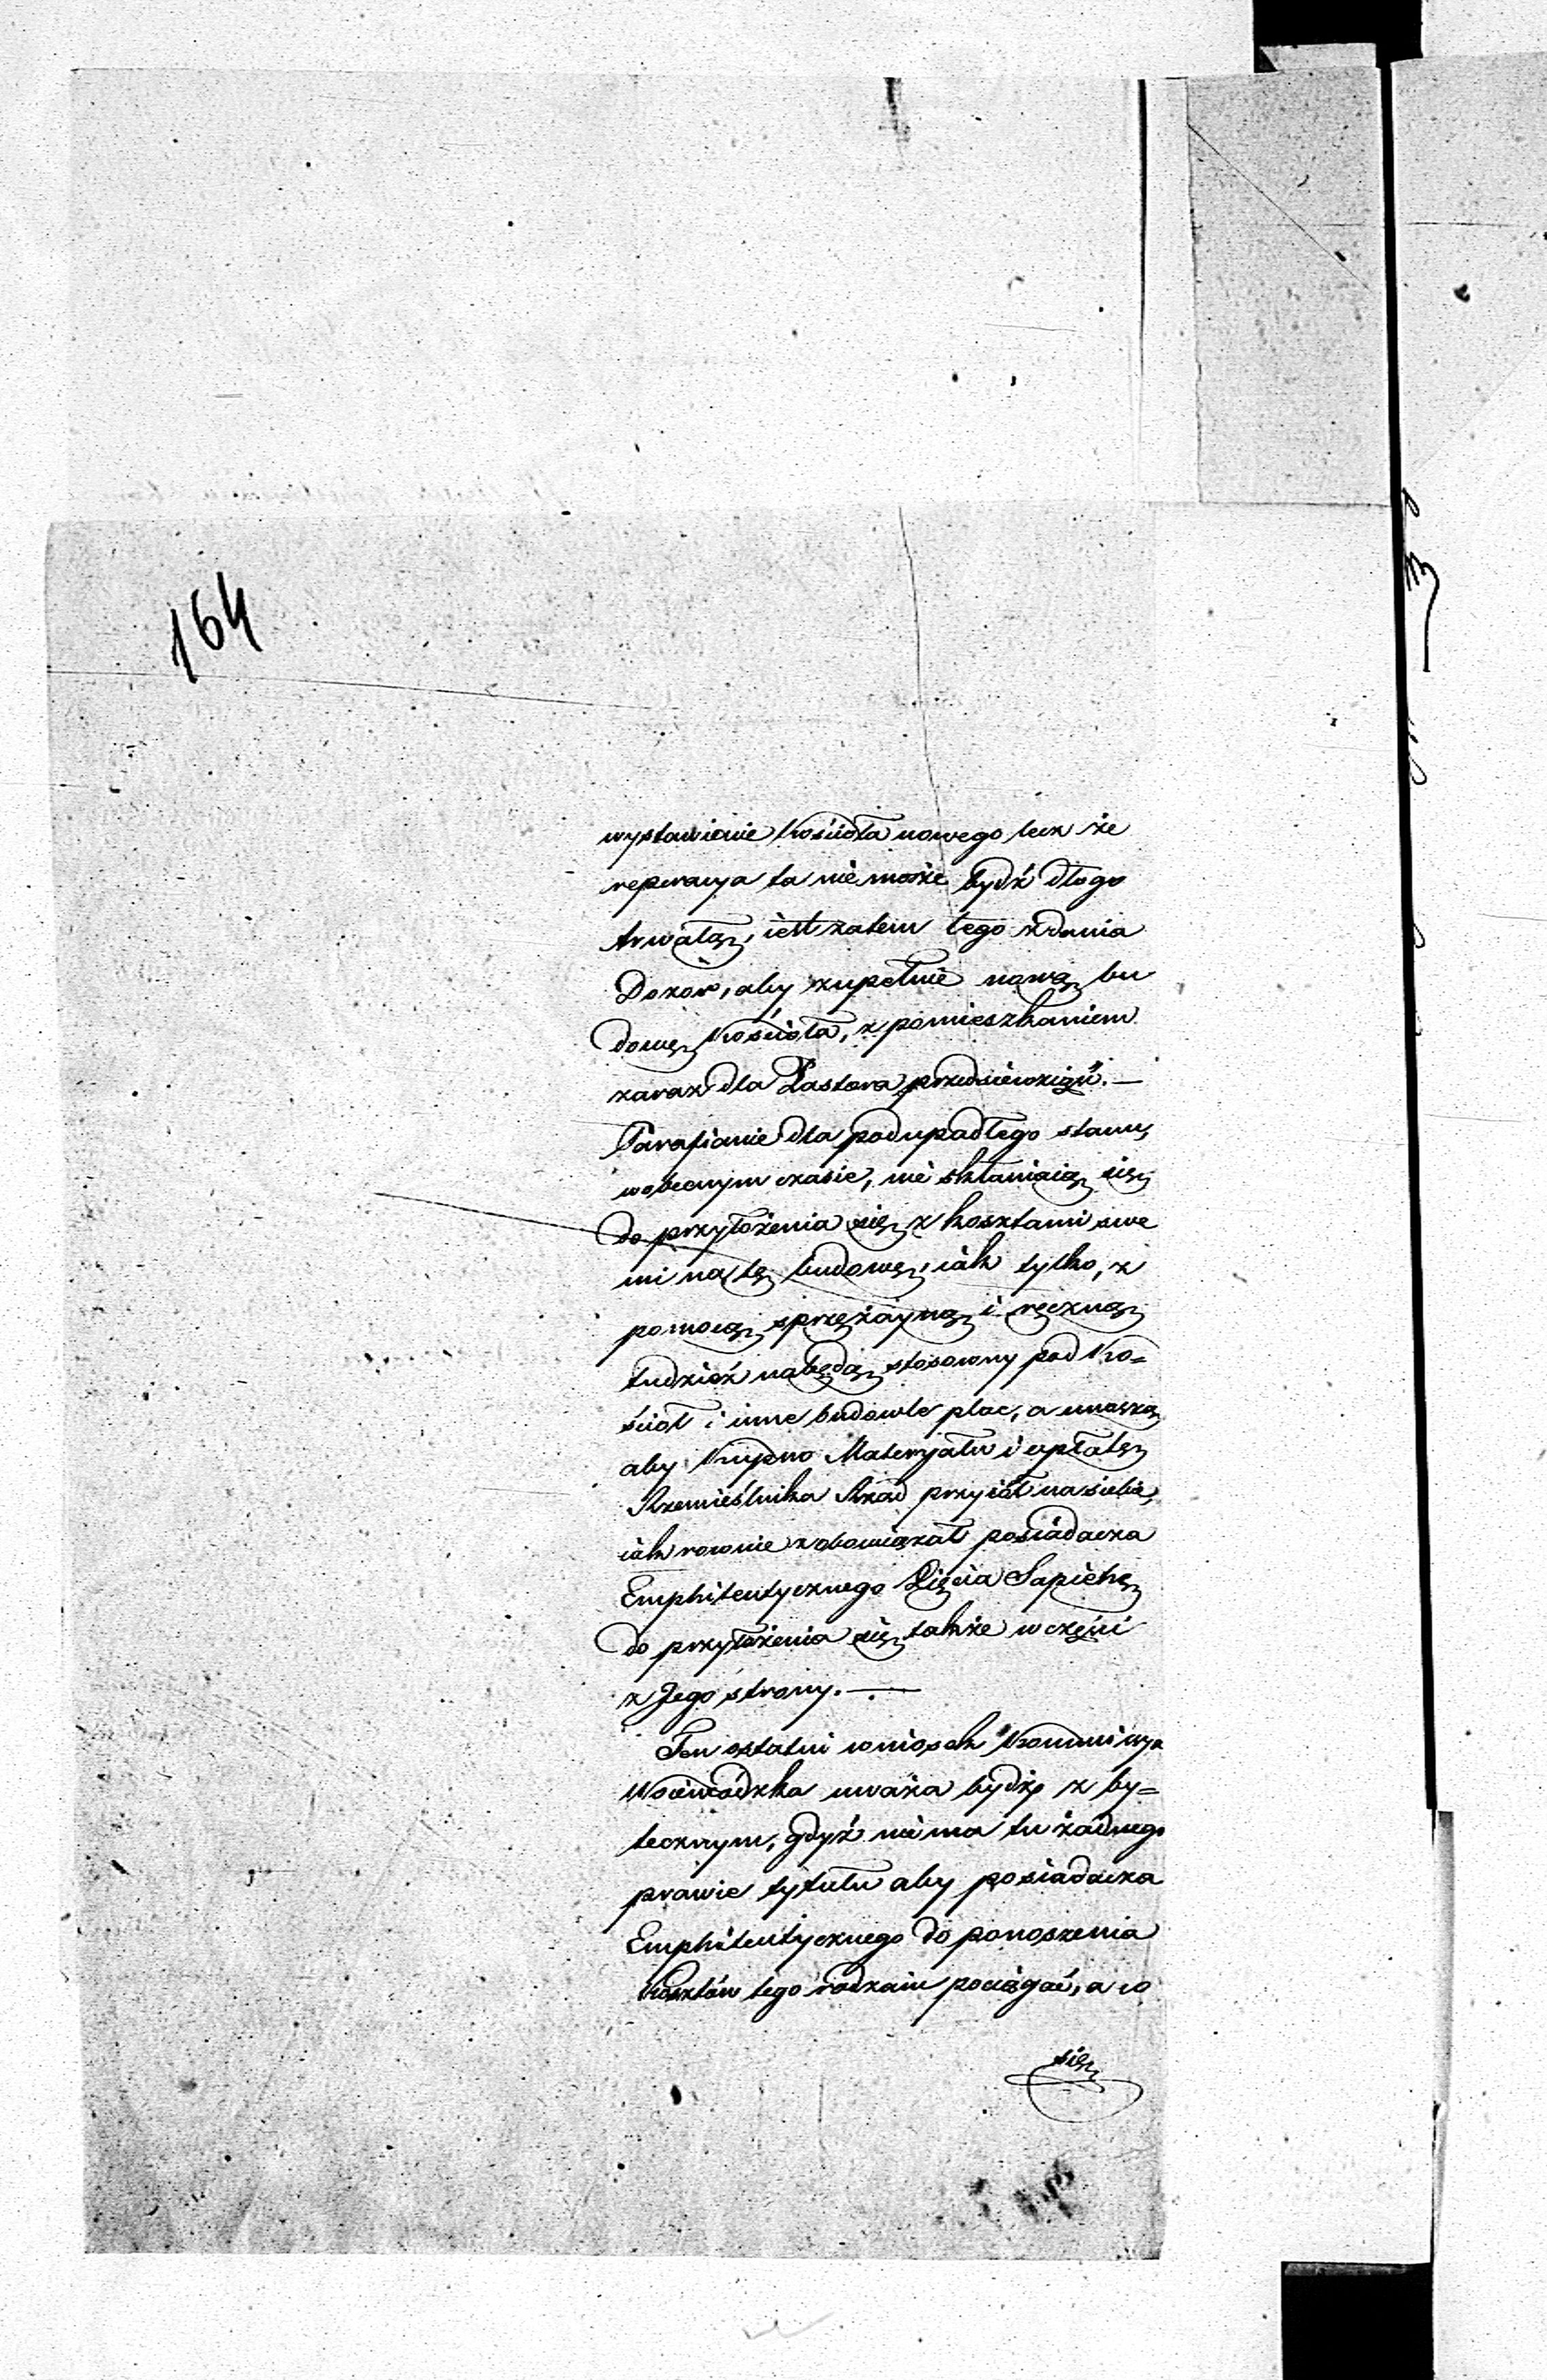 164
wystawienie Kościoła nowego lecz że
reperacya ta nie może bydź długo
trwałą, iest zatem tego zdania
Dozór, aby zupełnie nową bu
dowę Kościoła, z pomieszkaniem
zaraz dla Pastora przedsiewziąć. —
Parafianie dla podupadłego stanu,
w obecnym czasie, nie skłaniaią się
do przyłożenia się z kosztami swe
mi na tę budowę, iak tylko, z
pomocą sprzężayną i ręczną
tudzież nabędą stosowny pod Ko=
ściół i inne budowle plac, a wnoszą
aby Kupno Materyału i opłatę
Rzemieślnika Rząd przyiął na siebie,
iak rownie zobowiązał posiadacza
Emphiteutycznego Xięcia Sapiehę
do przyłożenia się także w części
z Jego strony. —
Ten ostatni wniosek Kommissya
Woiewódzka uważa bydź z by=
tecznym, gdyż nie ma tu żadnego
prawie tytułu aby posiadacza
Emphiteutycznego do ponoszenia
Kosztów tego rodzaiu pociągać, a co
się